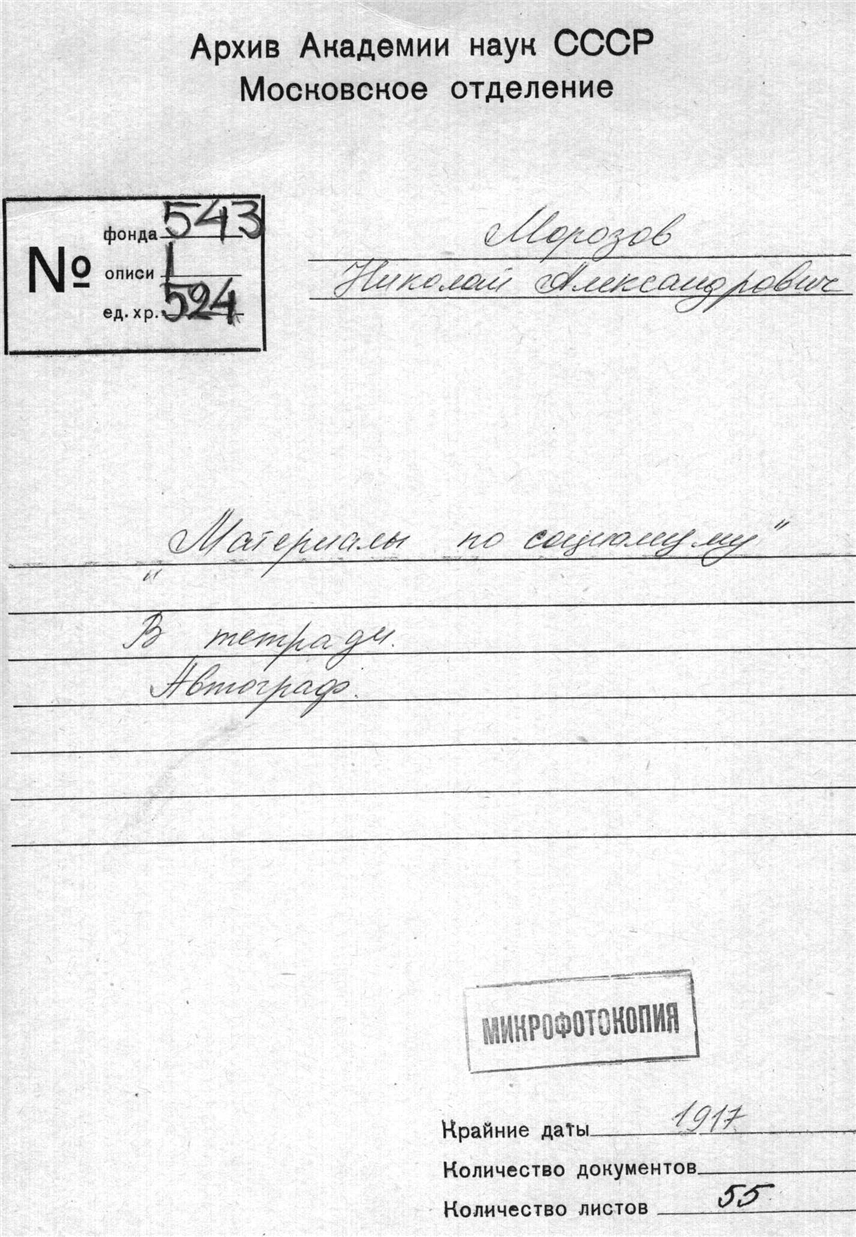 Архив Академии наук СССР
Московское отделение
№
фонда 543
описи 1
ед. хр. 524
Морозов
Николай Александрович
"Материалы по социализму"
В тетради.
Автограф.
МИКРОФОТОКОПИЯ
Крайние даты 1917
Количество документов
Количество листов 55